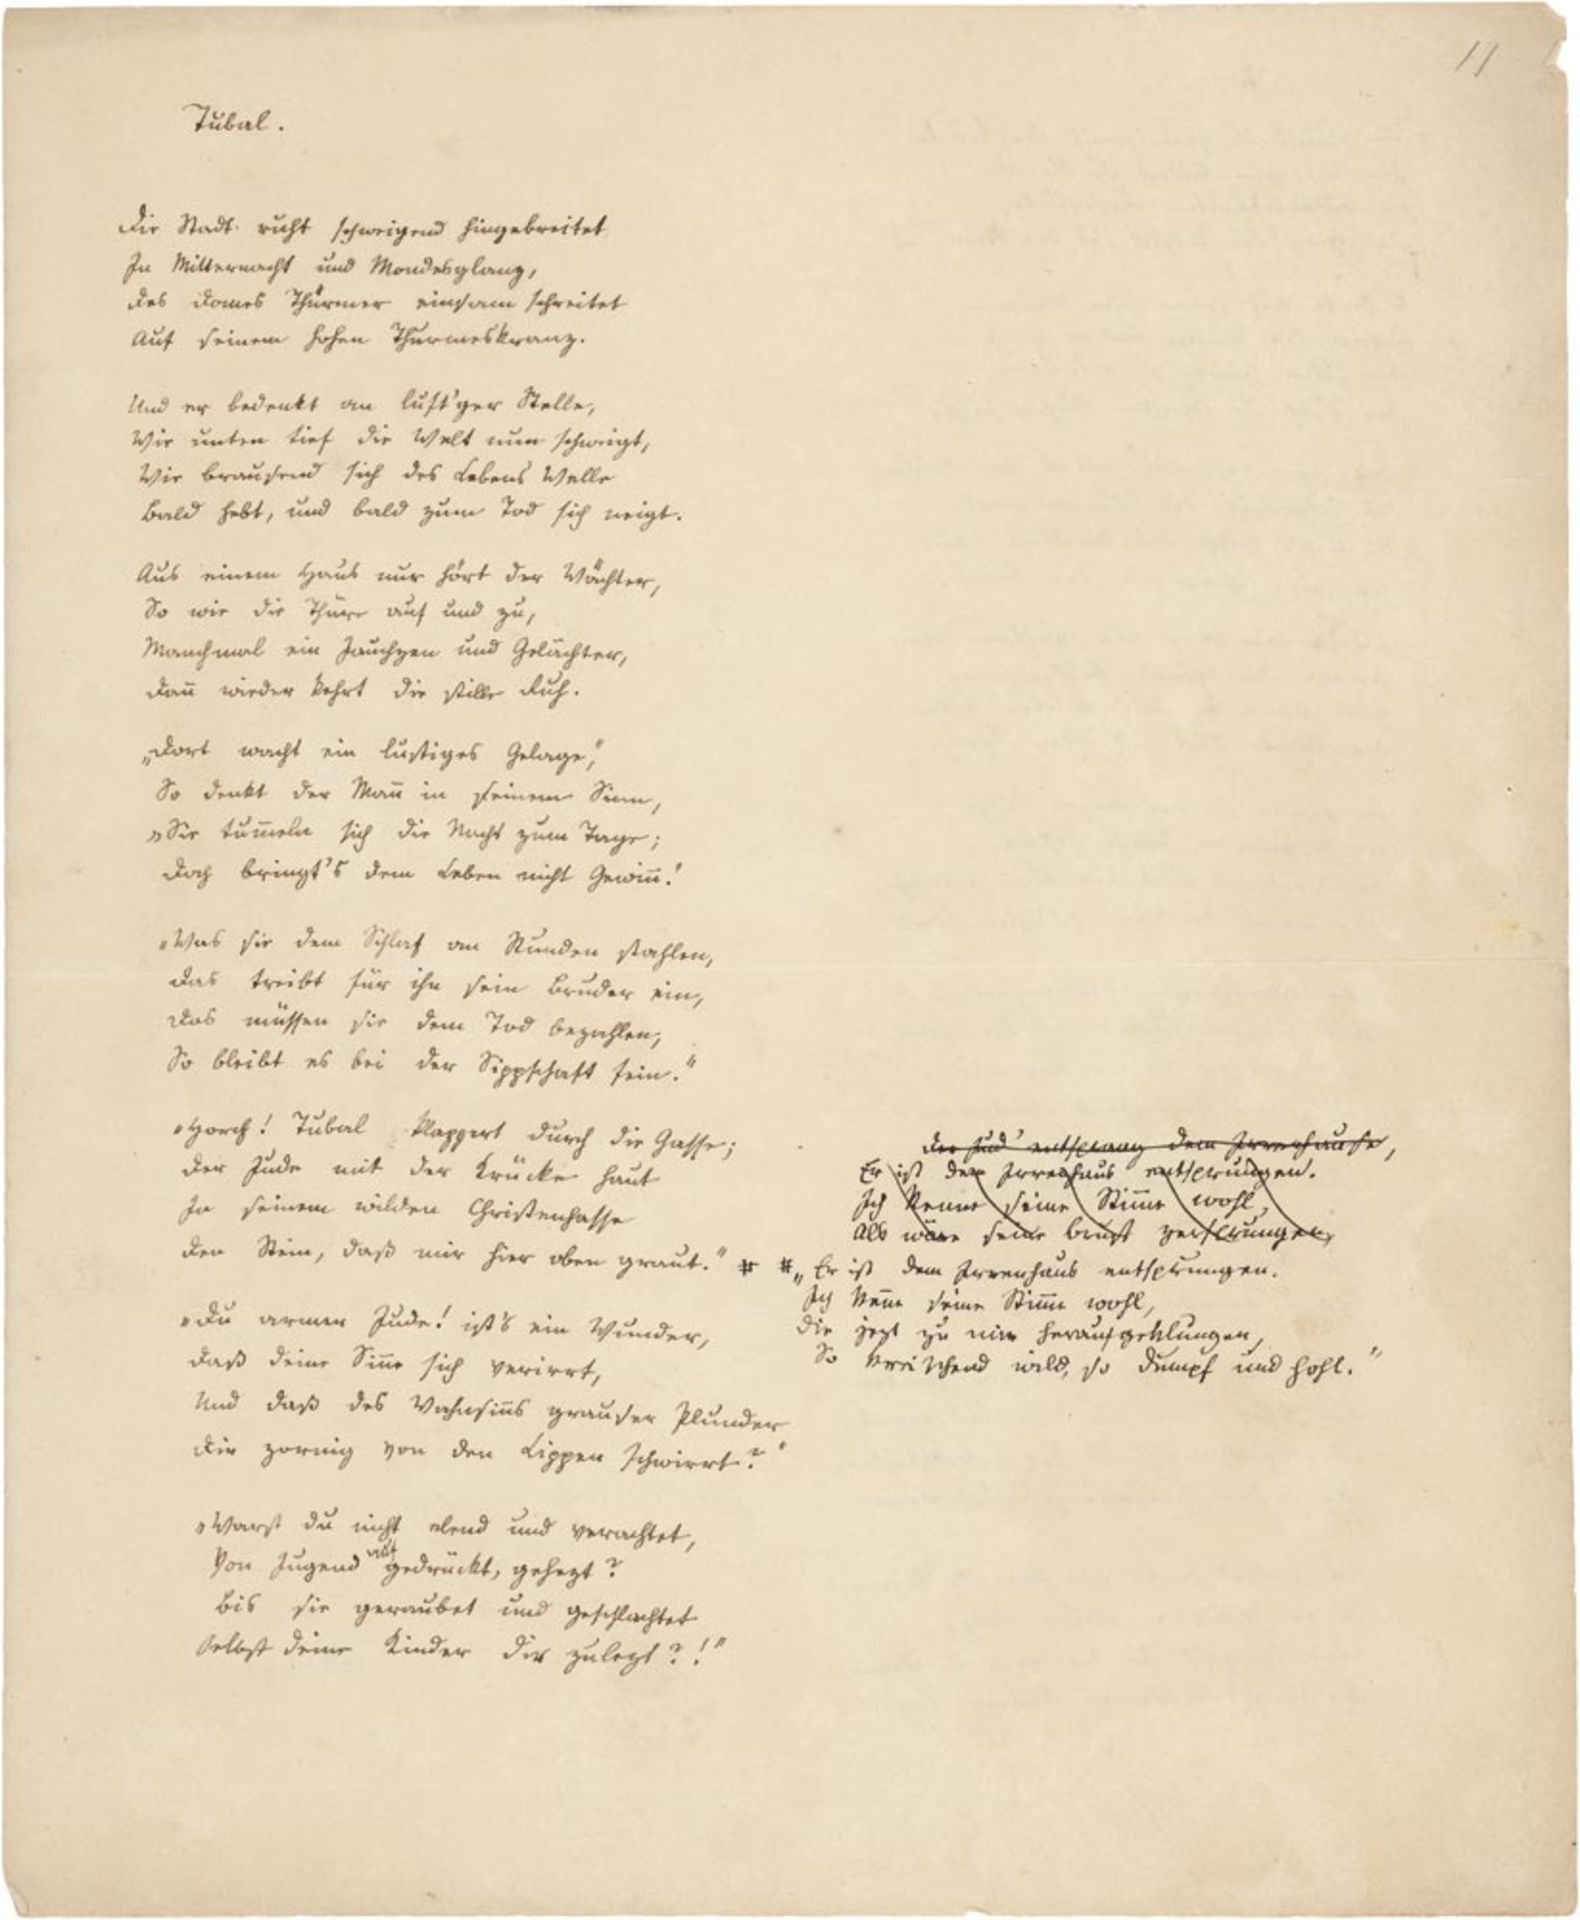 11
Tubal.
Die Stadt ruht schweigend hingebreitet
In Mitternacht und Mondesglanz,
Des Domes Thürmer einsam schreitet
Auf seinem hohen Thurmeskranz.
Und er bedenkt an luft'ger Stelle,
Wie unten tief die Welt nun schweigt,
Wie brausend sich des Lebens Welle
Bald hebt, und bald zum Tod sich neigt.
Aus einem Haus nur hört der Wächter,
So wie die Thüre auf und zu,
Manchmal ein Jauchzen und Gelächter,
Dan̄ wieder kehrt die stille Ruh.
„Dort wacht ein lustiges Gelage,"
So denkt der Man̄ in seinem Sinn,
„Sie tum̄eln sich die Nacht zum Tage;
Doch bringt's dem Leben nicht Gewin̄!
„Was sie dem Schlaf an Stunden stahlen,
Das treibt für ihn sein Bruder ein,
Das müssen sie dem Tod bezahlen,
So bleibt es bei der Sippschaft fein."
„Horch! Tubal klappert durch die Gasse;
Der Jude mit der Krücke haut
In seinem wilden Christenhasse
Den Stein, daß mir hier oben graut." #
„Du armer Jude! ist's ein Wunder,
Daß deine Sin̄e sich verirrt,
Und daß des Wahnsin̄s grauser Plunder
Dir zornig von den Lippen schwirrt?"
„Warst du nicht elend und verachtet,
Von Jugend auf gedrückt, gehezt?
Bis sie geraubet und geschlachtet
Selbst deine Kinder dir zulezt?!"
Der Jud' entsprang dem Irrenhause,
Er ist dem Irrenhaus entsprungen.
Ich kenne seine Stim̄e wohl,
Als wäre seine Brust zersprungen,
# „Er ist dem Irrenhaus entsprungen.
Ich ken̄e seine Stim̄e wohl,
Die jezt zu mir heraufgeklungen,
So kreischend wild, so dumpf und hohl."